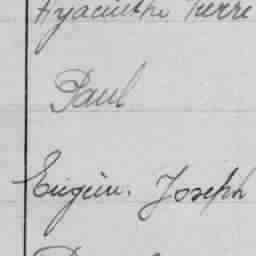 Hyacinthe Pierre
Paul
Eugène. Joseph